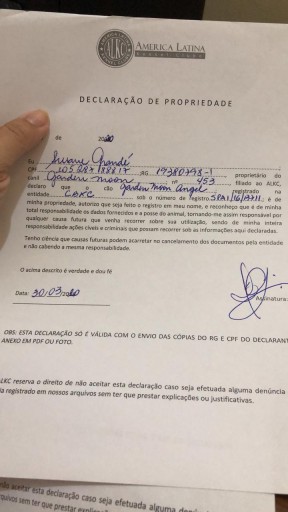 ALKC
AMERICA LATINA
KENNEL CLUB
DECLARAÇÃO DE PROPRIEDADE
de 2020
Eu Suzane Grandé
CPF RG proprietário do
canil Garden Moon nº 453 filiado ao ALKC,
declaro que o cão Garden Moon Angel registrado na
entidade CBKC sob o número de registro é de
minha propriedade, autorizo que seja feito o registro em meu nome, e reconheço que é de minha
total responsabilidade os dados fornecidos e a posse do animal, tornando-me assim responsável por
qualquer causa futura que venha ocorrer sobre sua utilização, sendo de minha inteira
responsabilidade ações cíveis e criminais que possam recorrer sob as informações aqui declaradas.
Tenho ciência que causas futuras podem acarretar no cancelamento dos documentos pela entidade
e não cabendo a mesma responsabilidade.
O acima descrito é verdade e dou fé
Data: 30/03/2020
Assinatura:
OBS: ESTA DECLARAÇÃO SÓ É VÁLIDA COM O ENVIO DAS CÓPIAS DO RG E CPF DO DECLARANT
ANEXO EM PDF OU FOTO.
ALKC reserva o direito de não aceitar esta declaração caso seja efetuada alguma denúncia
registrado em nossos arquivos sem ter que prestar explicações ou justificativas.
não aceitar esta declaração caso seja efetuada alguma
arquivos sem ter que prestar